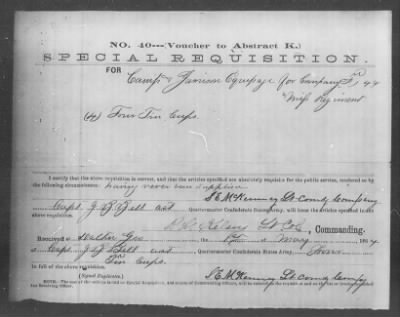 NO. 40---(Voucher to Abstract K.)
SPECIAL REQUISITION.
FOR
Camp & Garrison Equipage for Company F, 44
Miss Regiment
(4) Four Tin Cups.
I certify that the above requisition is correct; and that the articles specified are absolutely requisite for the public service, rendered so by
the following circumstances: having never been supplied
S. E. McKenney Lt Comd Company
Capt. J. Bell act Quartermaster Confederate States Army, will issue the articles specified in the
above requisition.
Lt Col, Commanding.
Received at Dalton Geo the of May 1864
of Capt. Bell act Quartermaster Confederate States Army, (Four)
Tin Cups.
in full of the above requisition.
(Signed Duplicates.)
S. E. McKenney Lt Comd Company